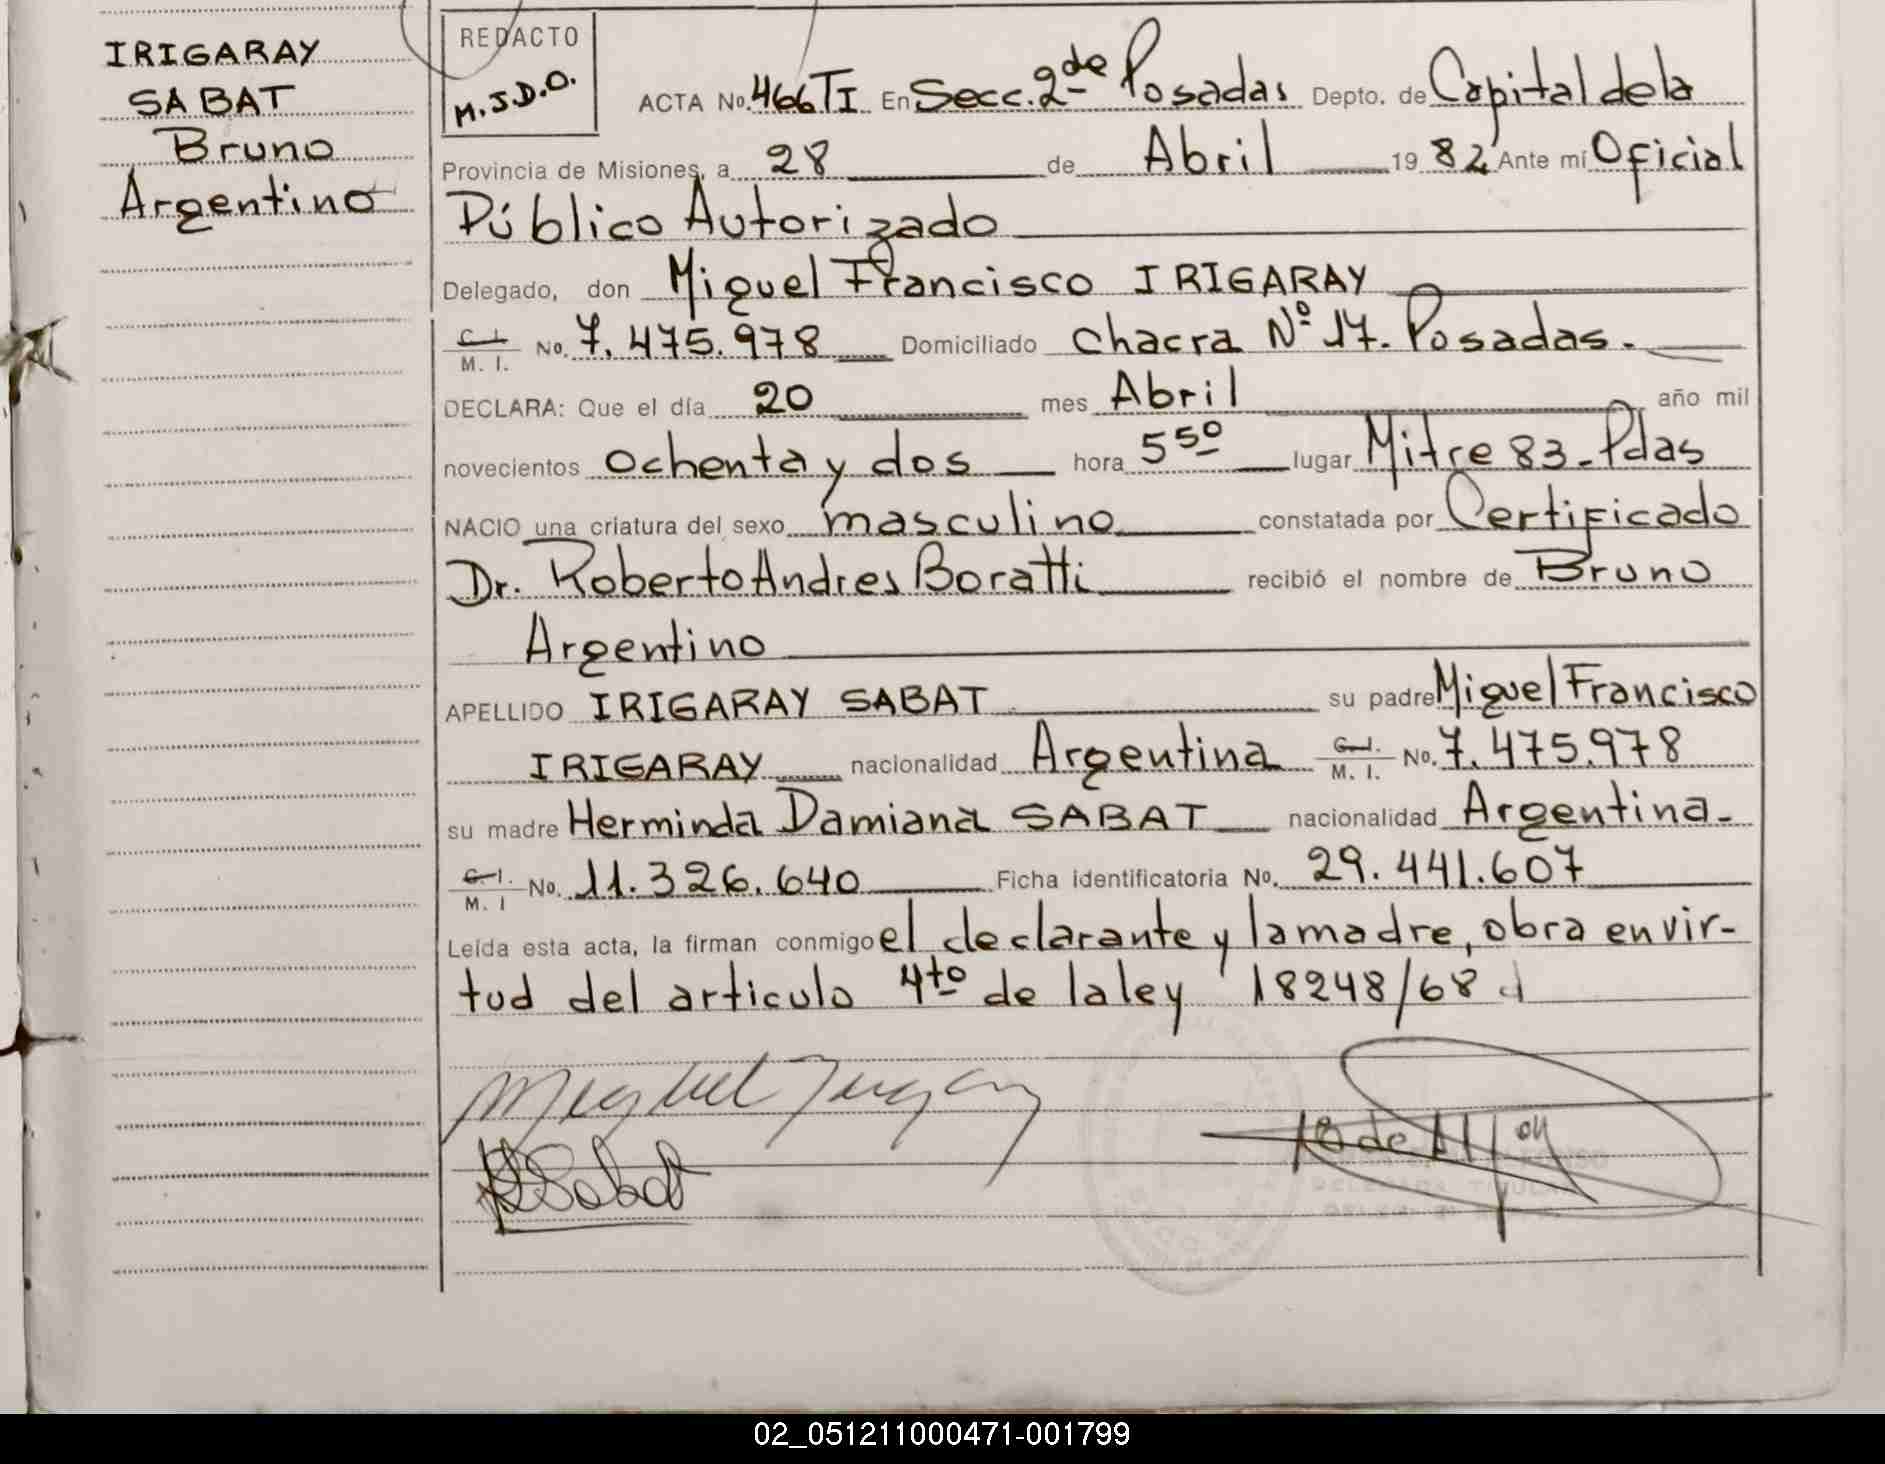 IRIGARAY
SABAT
Bruno
Argentino
REDACTO
M.J.D.O.
ACTA No. 466 TI En Secc. 2da de Posadas Depto. de Capital de la
Provincia de Misiones, a 28 de Abril 1982 Ante mí Oficial
Público Autorizado
Delegado, don Miguel Francisco IRIGARAY
C.I. M. I. No. 7.475.978 Domiciliado Chacra Nº 17. Posadas.
DECLARA: Que el día 20 mes Abril año mil
novecientos ochenta y dos hora 5 50 lugar Mitre 83-Pdas
NACIO una criatura del sexo masculino constatada por Certificado
Dr. Roberto Andres Boratti recibió el nombre de Bruno
Argentino
APELLIDO IRIGARAY SABAT su padre Miguel Francisco
IRIGARAY nacionalidad Argentina C.I. M. I. No. 7.475.978
su madre Herminda Damiana SABAT nacionalidad Argentina-
C.I. M. I No. 11.326.640 Ficha identificatoria No. 29.441.607
Leída esta acta, la firman conmigo el declarante y la madre, obra en vir-
tud del articulo 4to de la ley 18248/68
Sabat
DELEGADA TITULAR
02_051211000471-001799